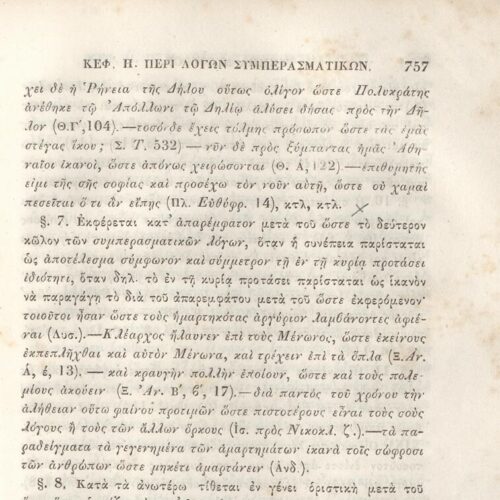 ΚΕΦ. Η. ΠΕΡΙ ΛΟΓΩΝ ΣΥΜΠΕΡΑΣΜΑΤΙΚΩΝ. 757
χει δὲ ἡ Ῥήνεια τῆς Δήλου οὕτως ὀλίγον ὥστε Πολυκράτης
ἀνέθηκε τῷ Ἀπόλλωνι τῷ Δηλίῳ ἁλύσει δήσας πρὸς τὴν Δῆ-
λον (Θ.Γ΄,104). —τοσόνδε ἔχεις τόλμης πρόσωπον ὥστε τὰς ἐμὰς
στέγας ἵκου; (Σ. Τ. 532) — νῦν δὲ πρὸς ξύμπαντας ἡμᾶς Ἀθη-
ναῖοι ἱκανοὶ, ὥστε ἀπόνως χειρώσονται (Θ. Α, 122) —ἐπιθυμητής
εἰμι τῆς σῆς σοφίας καὶ προσέχω τὸν νοῦν αὐτῇ, ὥστε οὐ χαμαὶ
πεσεῖται ὅ τι ἂν εἴπῃς (Πλ. Εὐθύφρ. 14), κτλ, κτλ.
§. 7. Ἐκφέρεται κατ' ἀπαρέμφατον μετὰ τοῦ ὥστε τὸ δεύτερον
κῶλον τῶν συμπερασματικῶν λόγων, ὅταν ἡ συνέπεια παρίσταται
ὡς ἀποτέλεσμα σύμφωνον καὶ σύμμετρον τῇ ἐν τῇ κυρίᾳ προτάσει
ἰδιότητι, ὅταν δηλ. τὸ ἐν τῇ κυρίᾳ προτάσει παρίσταται ὡς ἱκανὸν
νὰ παραγάγῃ τὸ διὰ τοῦ ἀπαρεμφάτου μετὰ τοῦ ὥστε ἐκφερόμενον·
τοιοῦτοι ἦσαν ὥστε τοὺς ἡμαρτηκότας ἀργύριον λαμβάνοντες ἀφιέ-
ναι (Λυσ.).—Κλέαρχος ἤλαυνεν ἐπὶ τοὺς Μένωνος, ὥστε ἐκείνους
ἐκπεπλῆχθαι καὶ αὐτὸν Μένωνα, καὶ τρέχειν ἐπὶ τὰ ὅπλα (Ξ.Αν.
Α, έ, 13). — καὶ κραυγὴν πολλὴν ἐποίουν, ὥστε καὶ τοὺς πολε-
μίους ἀκούειν (Ξ. Ἀν. Β΄, β΄, 17).—διὰ παντὸς τοῦ χρόνου τὴν
ἀλήθειαν οὕτω φαίνου προτιμῶν ὥστε πιστοτέρους εἶναι τοὺς σοὺς
λόγους ἢ τοὺς τῶν ἄλλων ὅρκους (Ἰσ. πρὸς Νικοκλ. ζ.).—τὰ πα-
ραδείγματα τὰ γεγενημένα τῶν ἁμαρτημάτων ἱκανὰ τοῖς σώφροσι
τῶν ἀνθρώπων ὥστε μηκέτι ἁμαρτάνειν (Ἀνδ.).
§. 8. Κατὰ τὰ ἀνωτέρω τίθεται ἐν γένει ὁριστικὴ μετὰ τοῦ